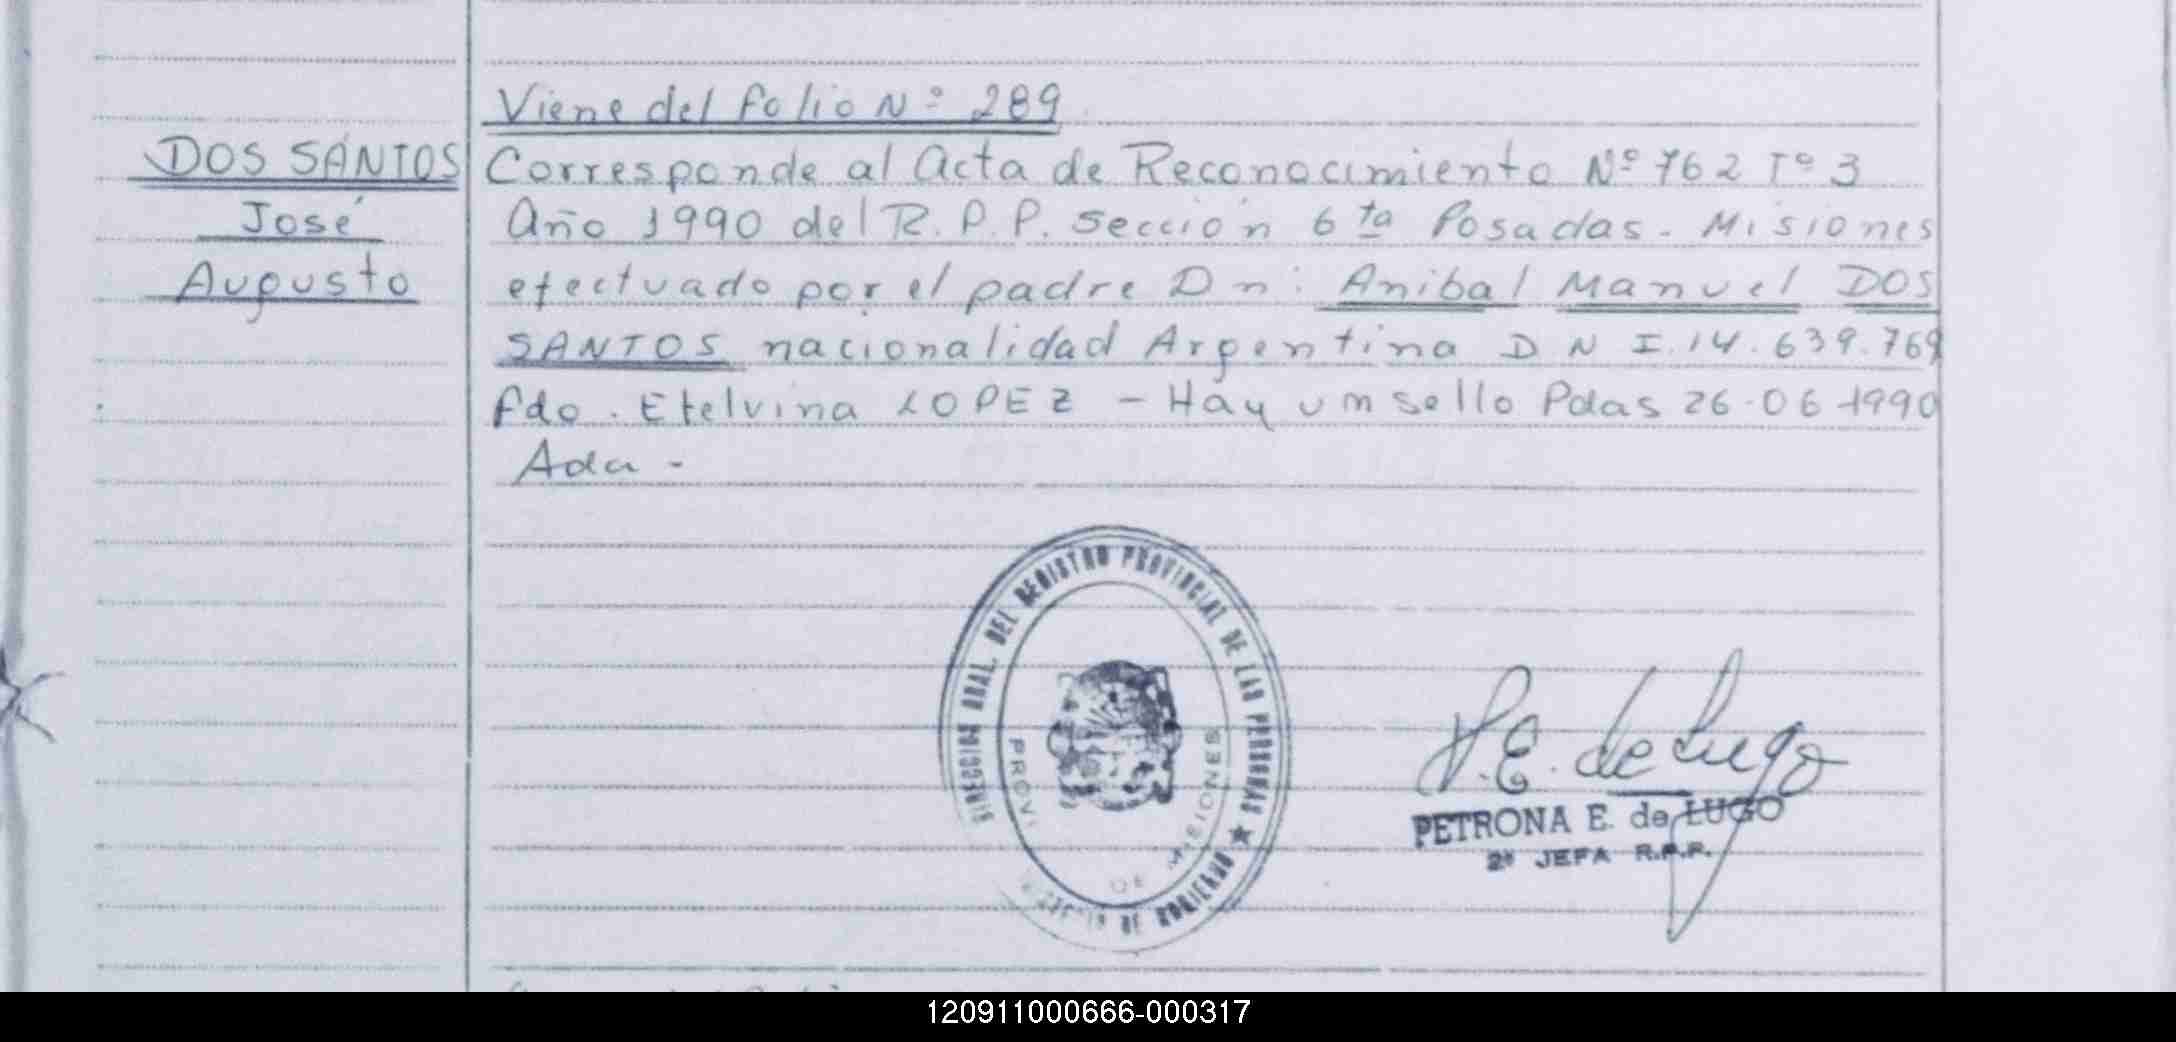 Viene del folio Nº 289
DOS SANTOS
José
Augusto
Corresponde al Acta de Reconocimiento Nº 762 Tº 3
Año 1990 del R.P.P. Sección 6 ta Posadas - Misiones
efectuado por el padre Dn: Anibal Manuel DOS
SANTOS nacionalidad Argentina D N I. 14.639.769
fdo. Etelvina LOPEZ - Hay um sello Pdas 26-06-1990
Ada -
DIRECCION GRAL. DEL REGISTRO PROVINCIAL DE LAS PERSONAS ★
DE GOBIERNO
PROVI DE MISIONES
P.E. de Lugo
PETRONA E. de LUGO
2ª JEFA R.P.P.
120911000666-000317